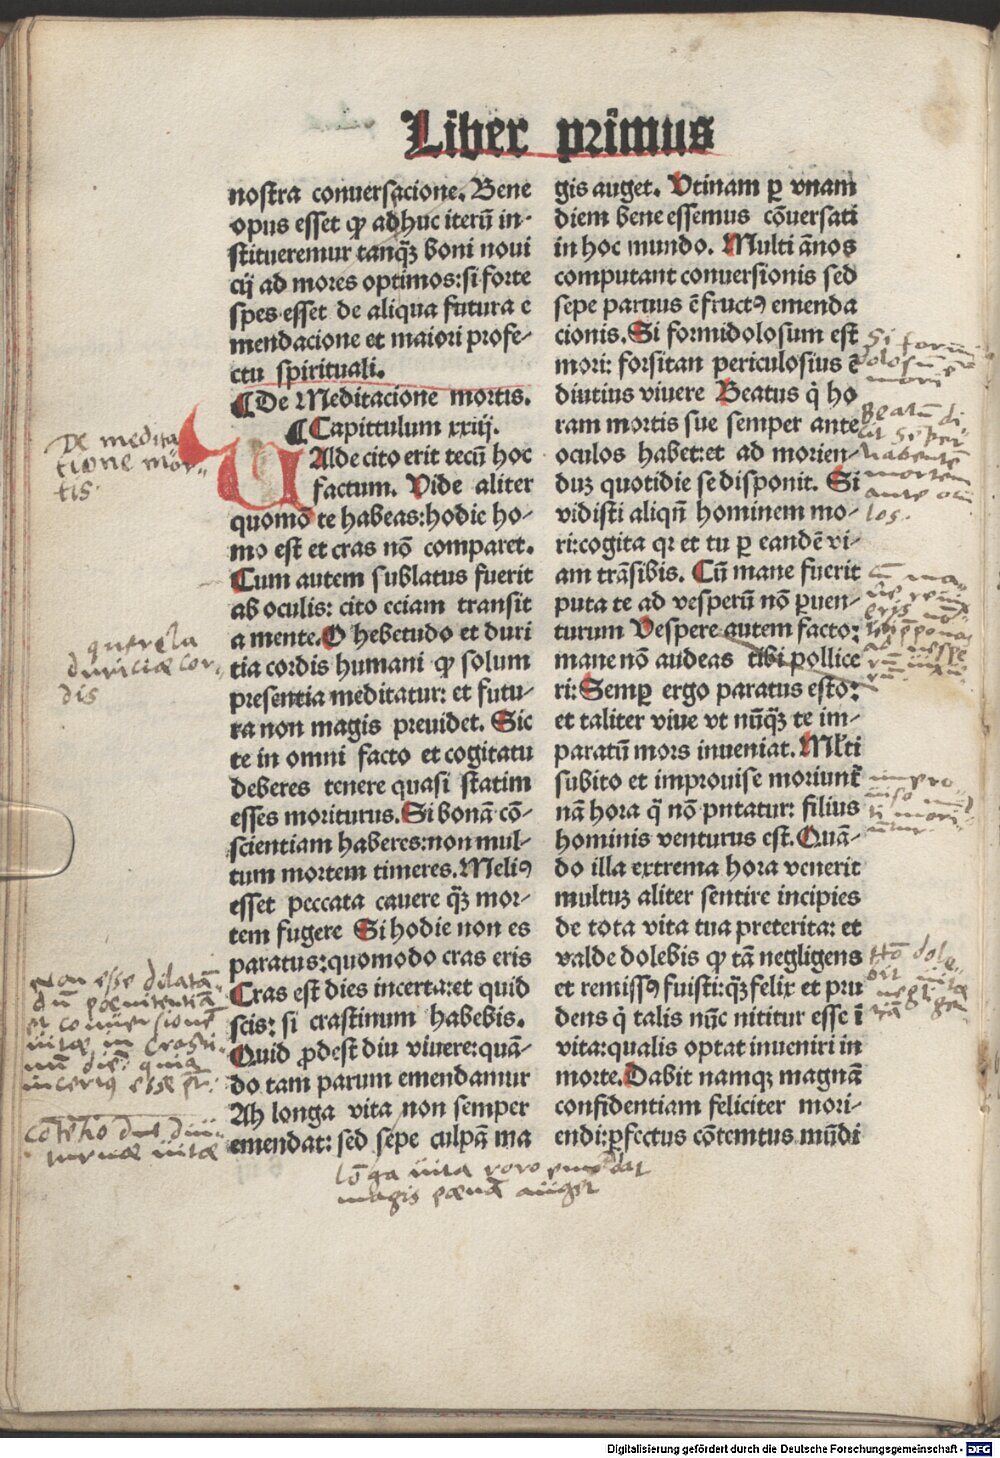 Liber primus
nostra conuersacione. Bene
opus esset ꝙ adhuc iterū in-
stitueremur tanq̄ꝫ boni noui
cij ad mores optimos: si forte
spes esset de aliqua futura e
mendacione et maiori profe-
ctu spirituali.
¶ De Meditacione mortis.
¶ Capittulum xxiij.
VAlde cito erit tecū hoc
factum. Vide aliter
quomō te habeas: hodie ho-
mo est et cras nō comparet.
Cum autem sublatus fuerit
ab oculis: cito eciam transit
a mente. O hebetudo et duri
tia cordis humani ꝙ solum
presentia meditatur: et futu-
ra non magis preuidet. Sic
te in omni facto et cogitatu
deberes tenere quasi statim
esses moriturus. Si bonā cō-
scientiam haberes: non mul-
tum mortem timeres. Meliꝰ
esset peccata cauere q̄ꝫ mor-
tem fugere Si hodie non es
paratus: quomodo cras eris
Cras est dies incerta: et quid
scis: si crastinum habebis.
Quid ꝓdest diu viuere: quā-
do tam parum emendamur
Ah longa vita non semper
emendat: sed sepe culpā ma
gis auget. Vtinam ꝑ vnam
diem bene essemus cōuersati
in hoc mundo. Multi ānos
computant conuersionis sed
sepe paruus ē fructꝰ emenda
cionis. Si formidolosum est
mori: forsitan periculosius ē
diutius viuere Beatus q̇ ho
ram mortis sue semper ante
oculos habet: et ad morien-
duꝫ quotidie se disponit. Si
vidisti aliqn̄ hominem mo-
ri: cogita qꝛ et tu ꝑ eandē vi-
am trāsibis. Cū mane fuerit
puta te ad vesperū nō ꝑuen-
turum Vespere autem facto:
mane nō audeas tibi pollice
ri: Semꝑ ergo paratus esto:
et taliter viue vt nūq̄ꝫ te im-
paratū mors inueniat. Ml̄ti
subito et improuise moriunt᷑
nā hora q̄ nō putatur: filius
hominis venturus est. Quā-
do illa extrema hora venerit
multuꝫ aliter sentire incipies
de tota vita tua preterita: et
valde dolebis ꝙ tā negligens
et remissꝰ fuisti: q̄ꝫ felix et pru
dens q̇ talis nūc nititur esse ī
vita: qualis optat inueniri in
morte. Dabit namqꝫ magnā
confidentiam feliciter mori-
endi: ꝑfectus cōtemtus mūdi
De medita
tione mor-
tis.
querela
duriciæ cor-
dis
Non esse dilatā-
dū pœnitentiā
et conuersionē
uitæ in crasti-
nū diē quia
incertus
uitæ
Si formi-
dolosū ē
mori
Beatū di
habentē
mortem
ante ocu
los.
impro-
uiso
mori-
lōga uita raro emēdat
magis pœnā auget
Digitalisierung gefördert durch die Deutsche Forschungsgemeinschaft - DFG